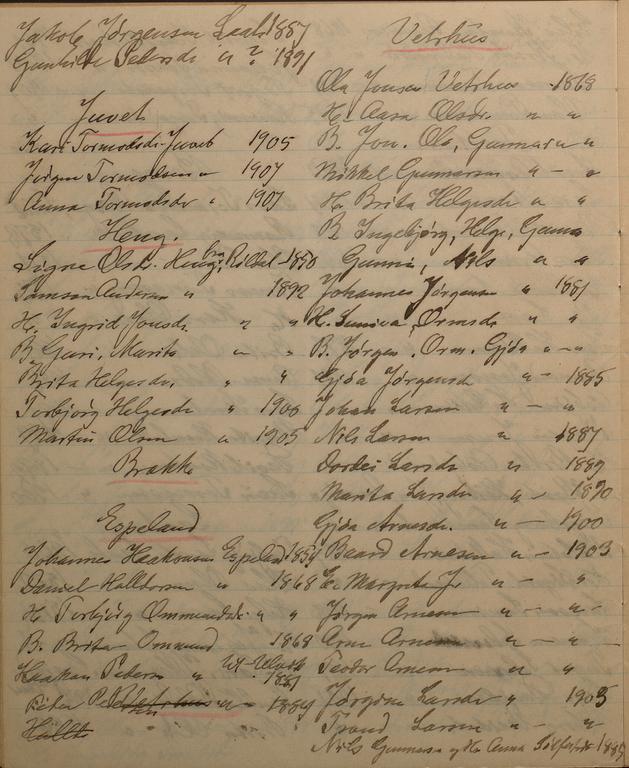 Jakob Jørgensen Laali 1887
Gunhilde Petersdr " ? " 1891
Juvet
Kari Tormodsdr. Juvet 1905
Jørgen Tormodsen " 1907
Anna Tormodsdr " 1907
Haug.
Signe Olsdr. Haug, fra Kibbel 1890
Samson Andersen " 1892
H. Ingrid Jonsdr. " "
B. Guri, Marita " "
Brita Helgesdr. " "
Torbjørg Helgesdr " 1900
Martin Olsen " 1905
Brække
Espeland
Johannes Haakonsen Espeland 1854
Daniel Halldorsen " 1868
H. Torbjørg Ommundsdr " "
B. Brita Ommund 1868
Haakan Peders " 1881
Peter " 1884
Vetrhus
Ola Jonsen Vetrhus - 1868
H. Aasa Olsdr. " "
B. Jon. Ola, Gunnara "
Mikkel Gunnarsen " - "
H. Brita Helgesdr " "
B. Ingebjørg, Helge, Gunna
Gunni, Nils " "
Johannes Jørgensen " 1881
H. Suniva Ormsdr " "
B. Jørgen, Orm. Gjøa " - "
Gjøa Jørgensdr " - 1885
Johan Larsen " - "
Nils Larsen " 1887
Dordei Larsdr " 1889
Marita Larsdr " - 1890
Gjøa Arnesdr. " - 1900
Baard Arnesen " - 1903
E. Margreta Jr " - "
Jørgen Arnesen " - " -
Arne Arnesen " - " -
Teodor Arnesen " "
Jørgine Larsdr " 1905
Trond Larsen " - "
Nils Gunnarsen og H. Anna 1885